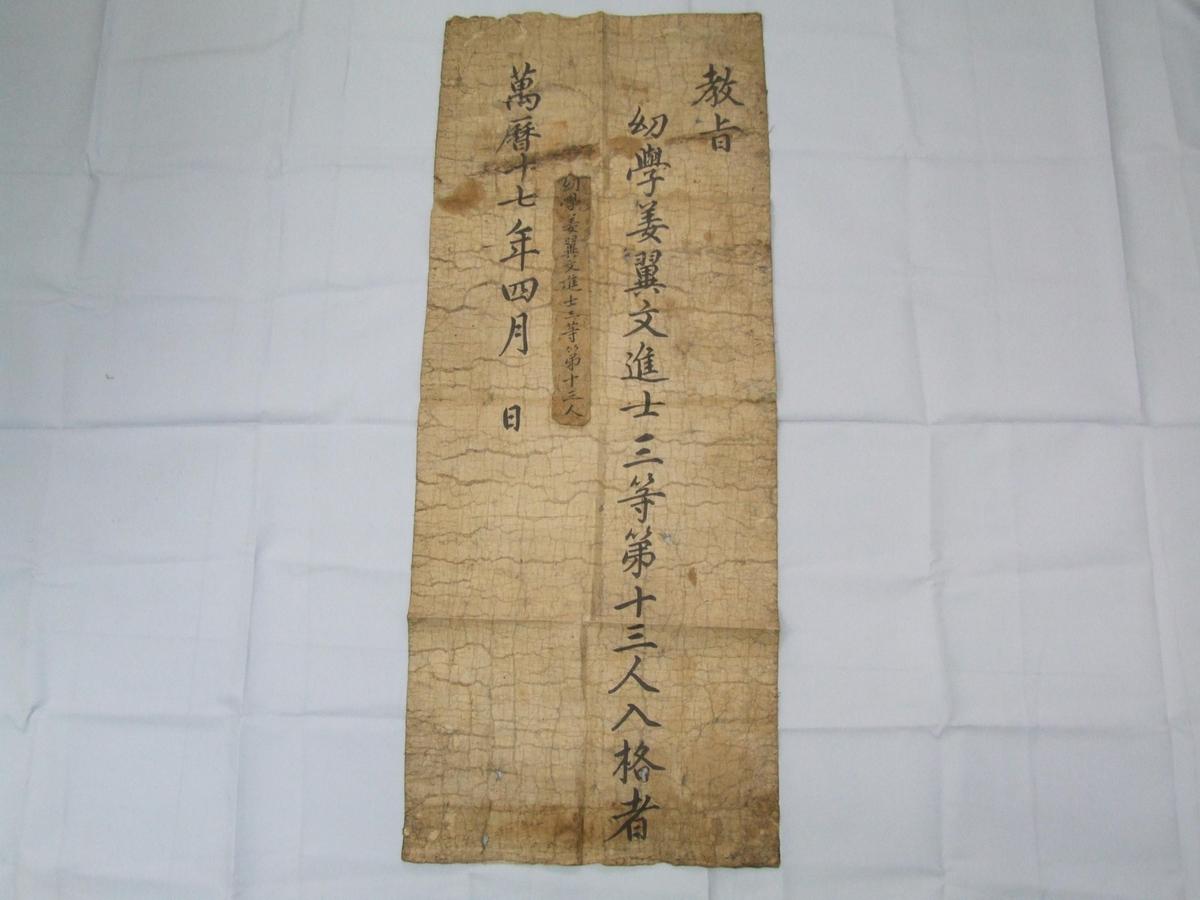 教旨
幼學姜翼文進士三等第十三人入格者
幼學姜翼文進士三等第十三人
萬曆十七年四月 日